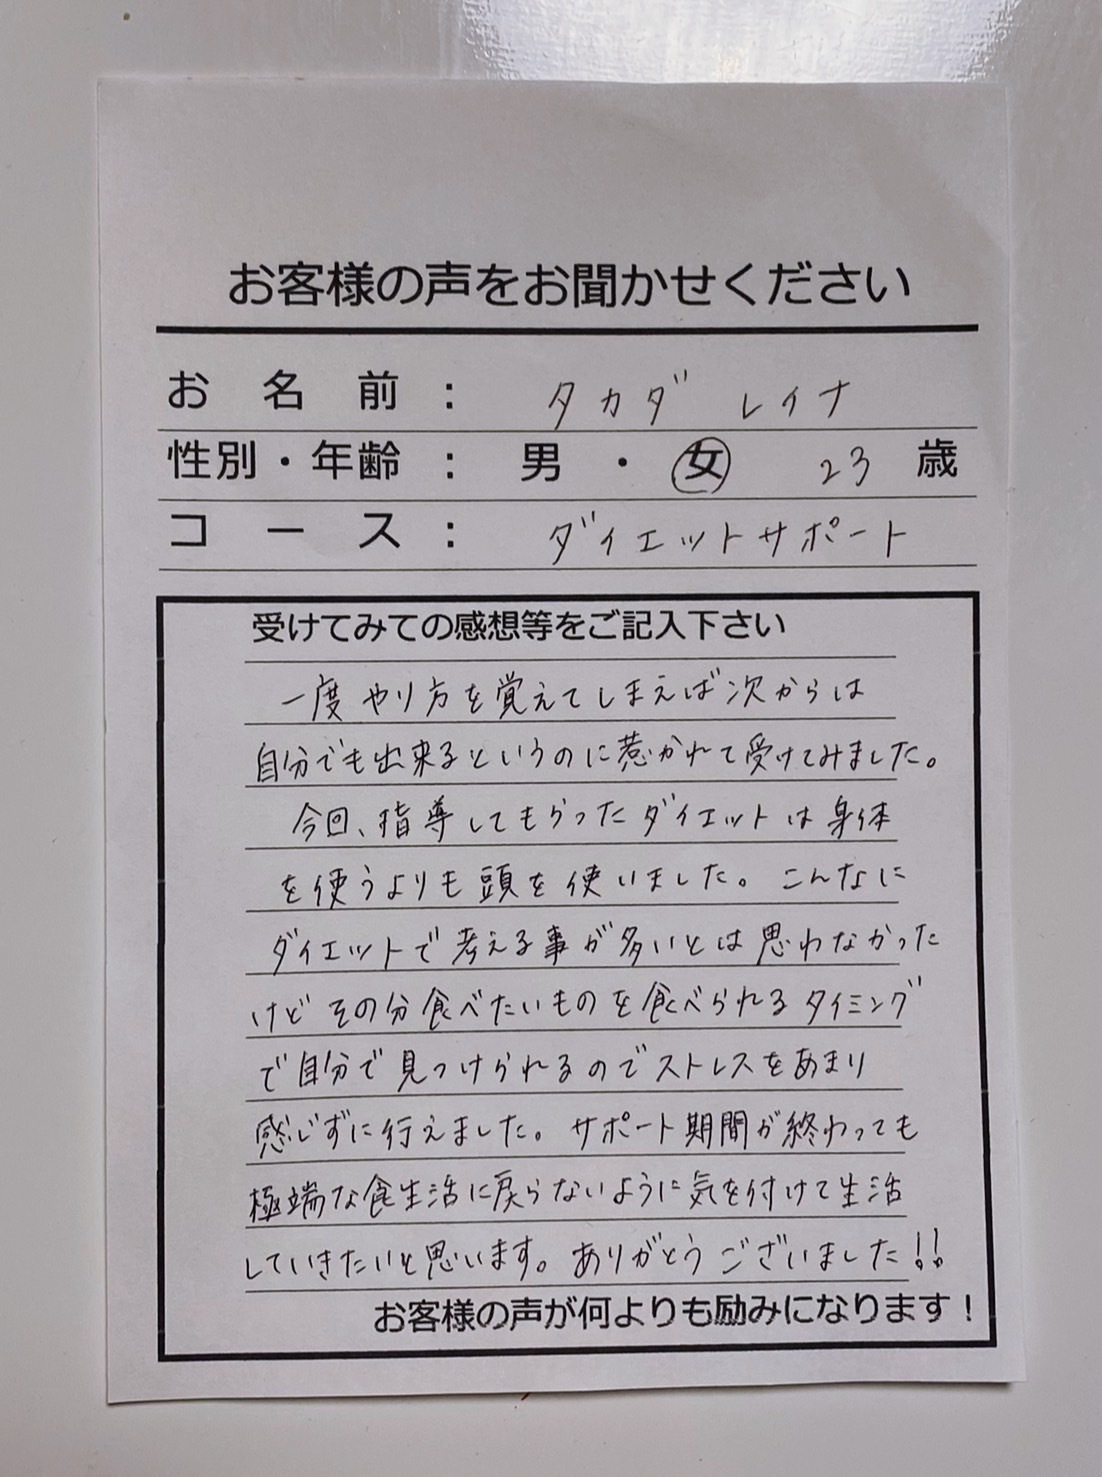 お客様の声をお聞かせください
お名前： タカダ レイナ
性別・年齢： 男・女 23歳
コース： ダイエットサポート
受けてみての感想等をご記入下さい
一度やり方を覚えてしまえば次からは
自分でも出来るというのに惹かれて受けてみました。
今回、指導してもらったダイエットは身体
を使うよりも頭を使いました。こんなに
ダイエットで考える事が多いとは思わなかった
けどその分食べたいものを食べられるタイミング
で自分で見つけられるのでストレスをあまり
感じずに行えました。サポート期間が終わっても
極端な食生活に戻らないように気を付けて生活
していきたいと思います。ありがとうございました!!
お客様の声が何よりも励みになります！